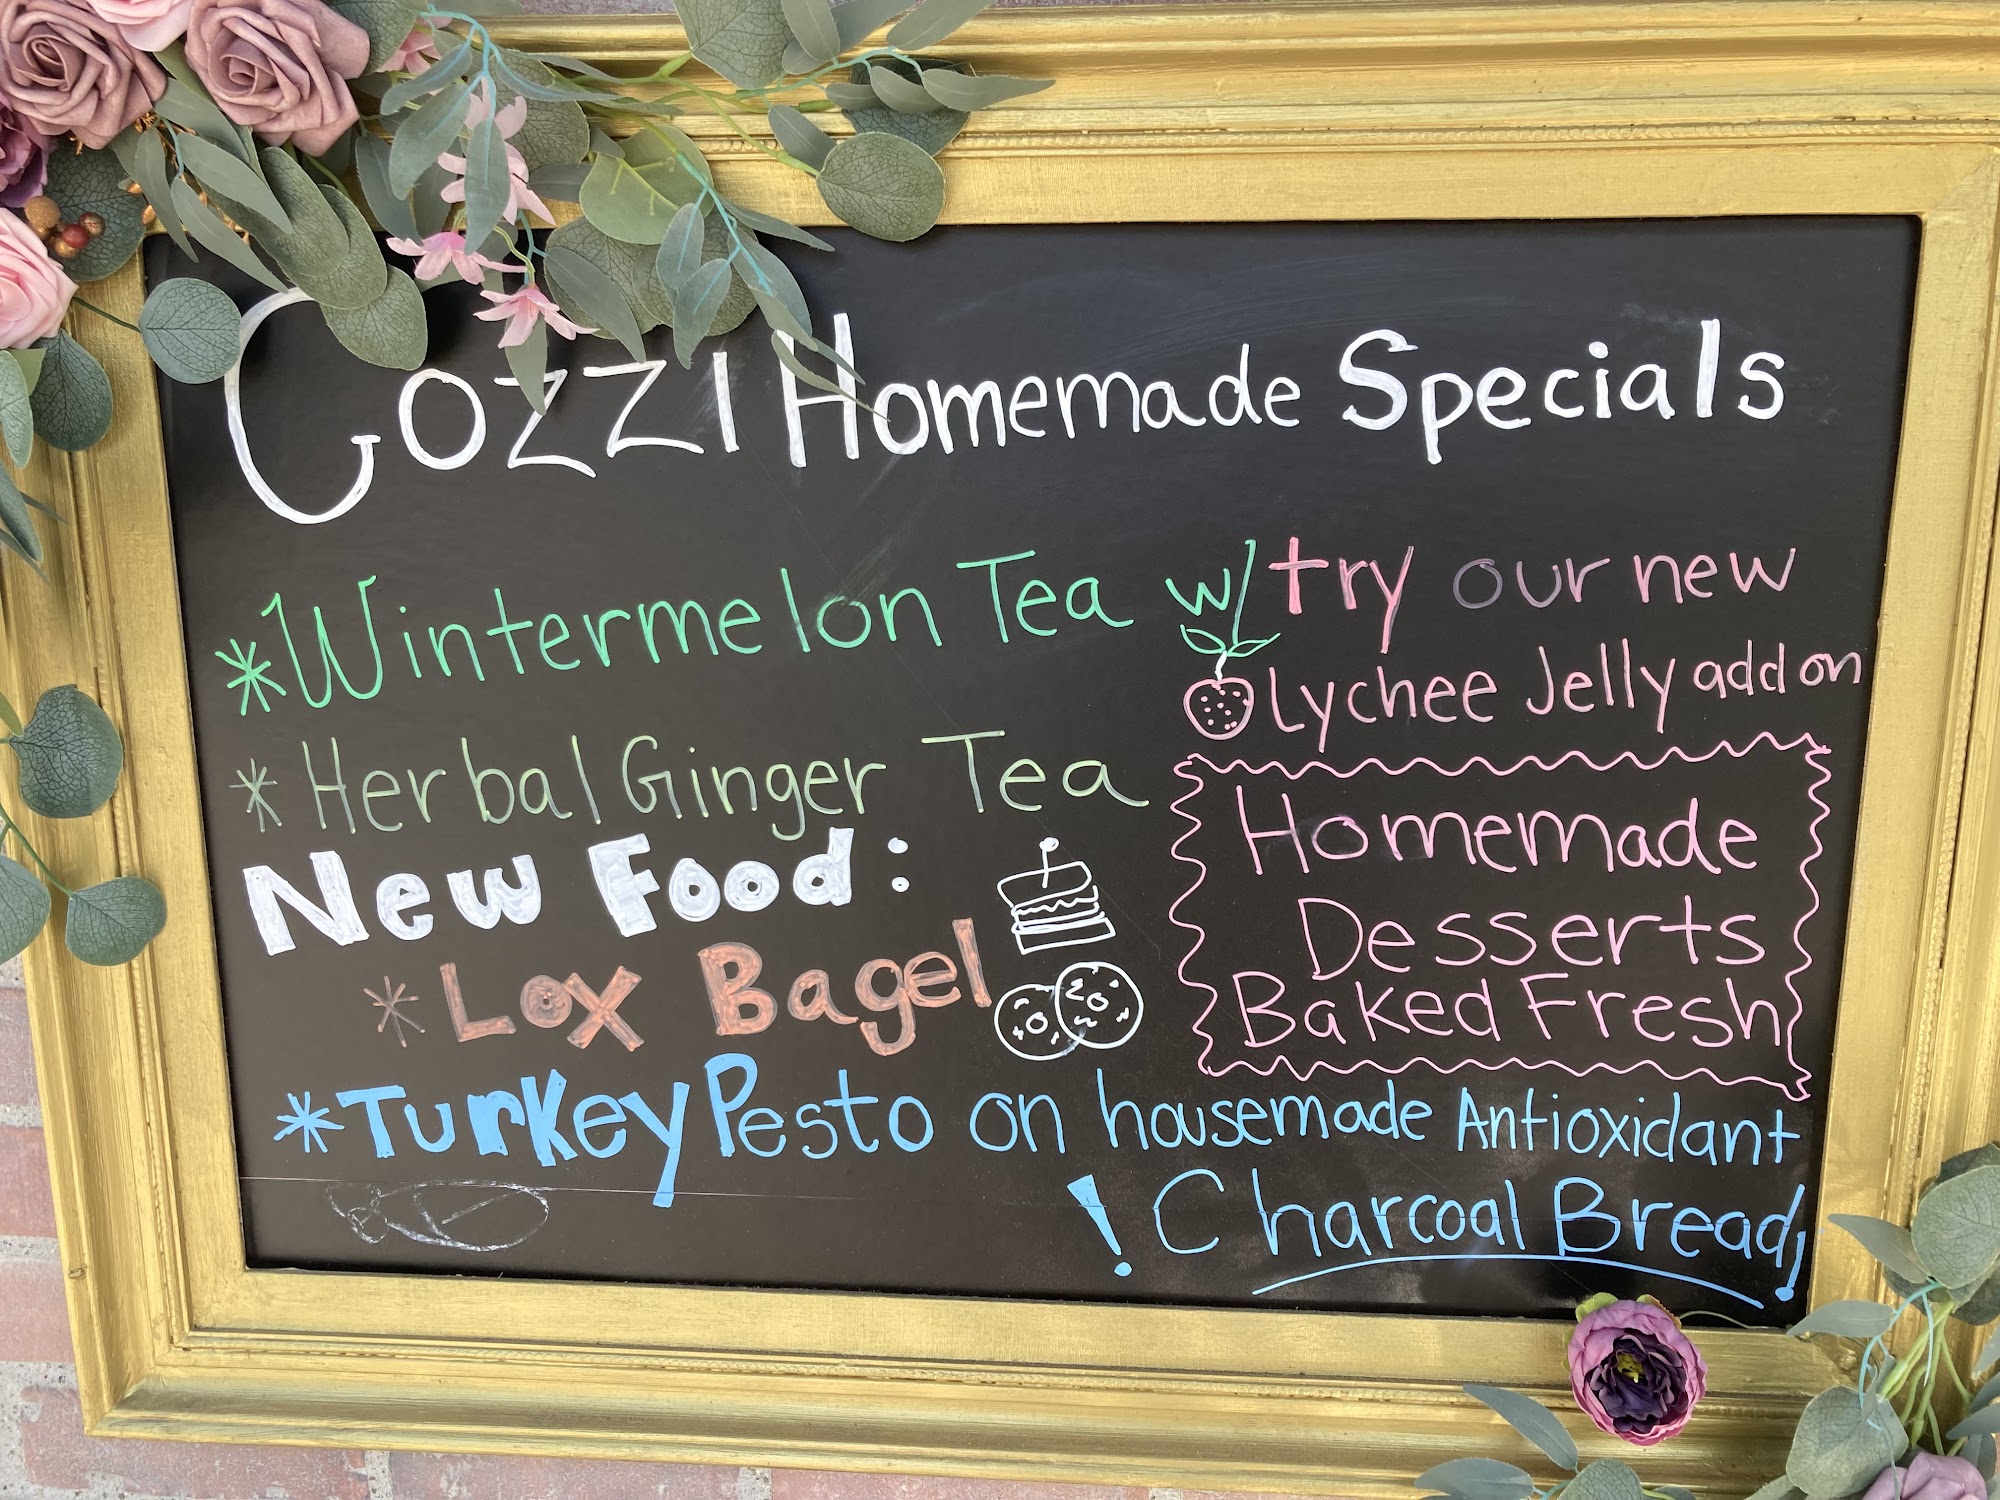 Cozzi Homemade Specials
*Wintermelon Tea w/ try our new
Lychee Jelly add on
* Herbal Ginger Tea
New Food:
* Lox Bagel
Homemade
Desserts
Baked Fresh
*Turkey Pesto on housemade Antioxidant
! Charcoal Bread!